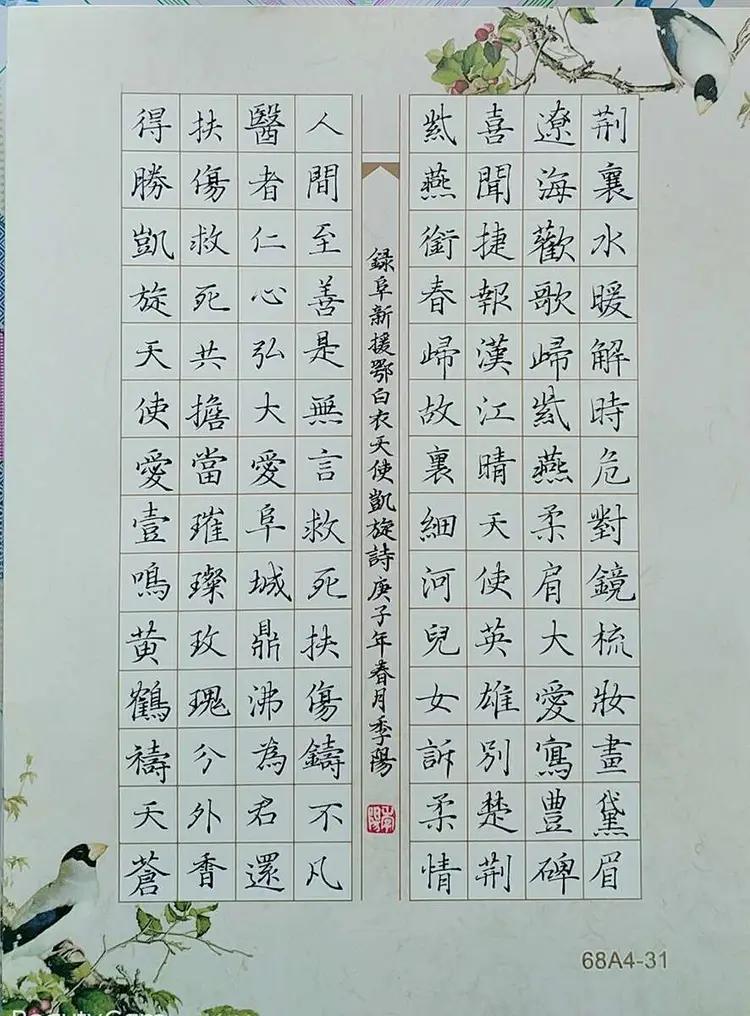 荆襄水暖解時危對鏡梳妝畫黛眉
遼海歡歌歸紫燕柔肩大愛寫豐碑
喜聞捷報漢江晴天使英雄别楚荆
紫燕銜春歸故裏細河兒女訴柔情
録阜新援鄂白衣天使凱旋詩庚子年春月季陽
人間至善是無言救死扶傷鑄不凡
醫者仁心弘大愛阜城鼎沸為君還
扶傷救死共擔當璀璨玫瑰分外香
得勝凱旋天使愛壹鳴黄鶴禱天蒼
68A4-31